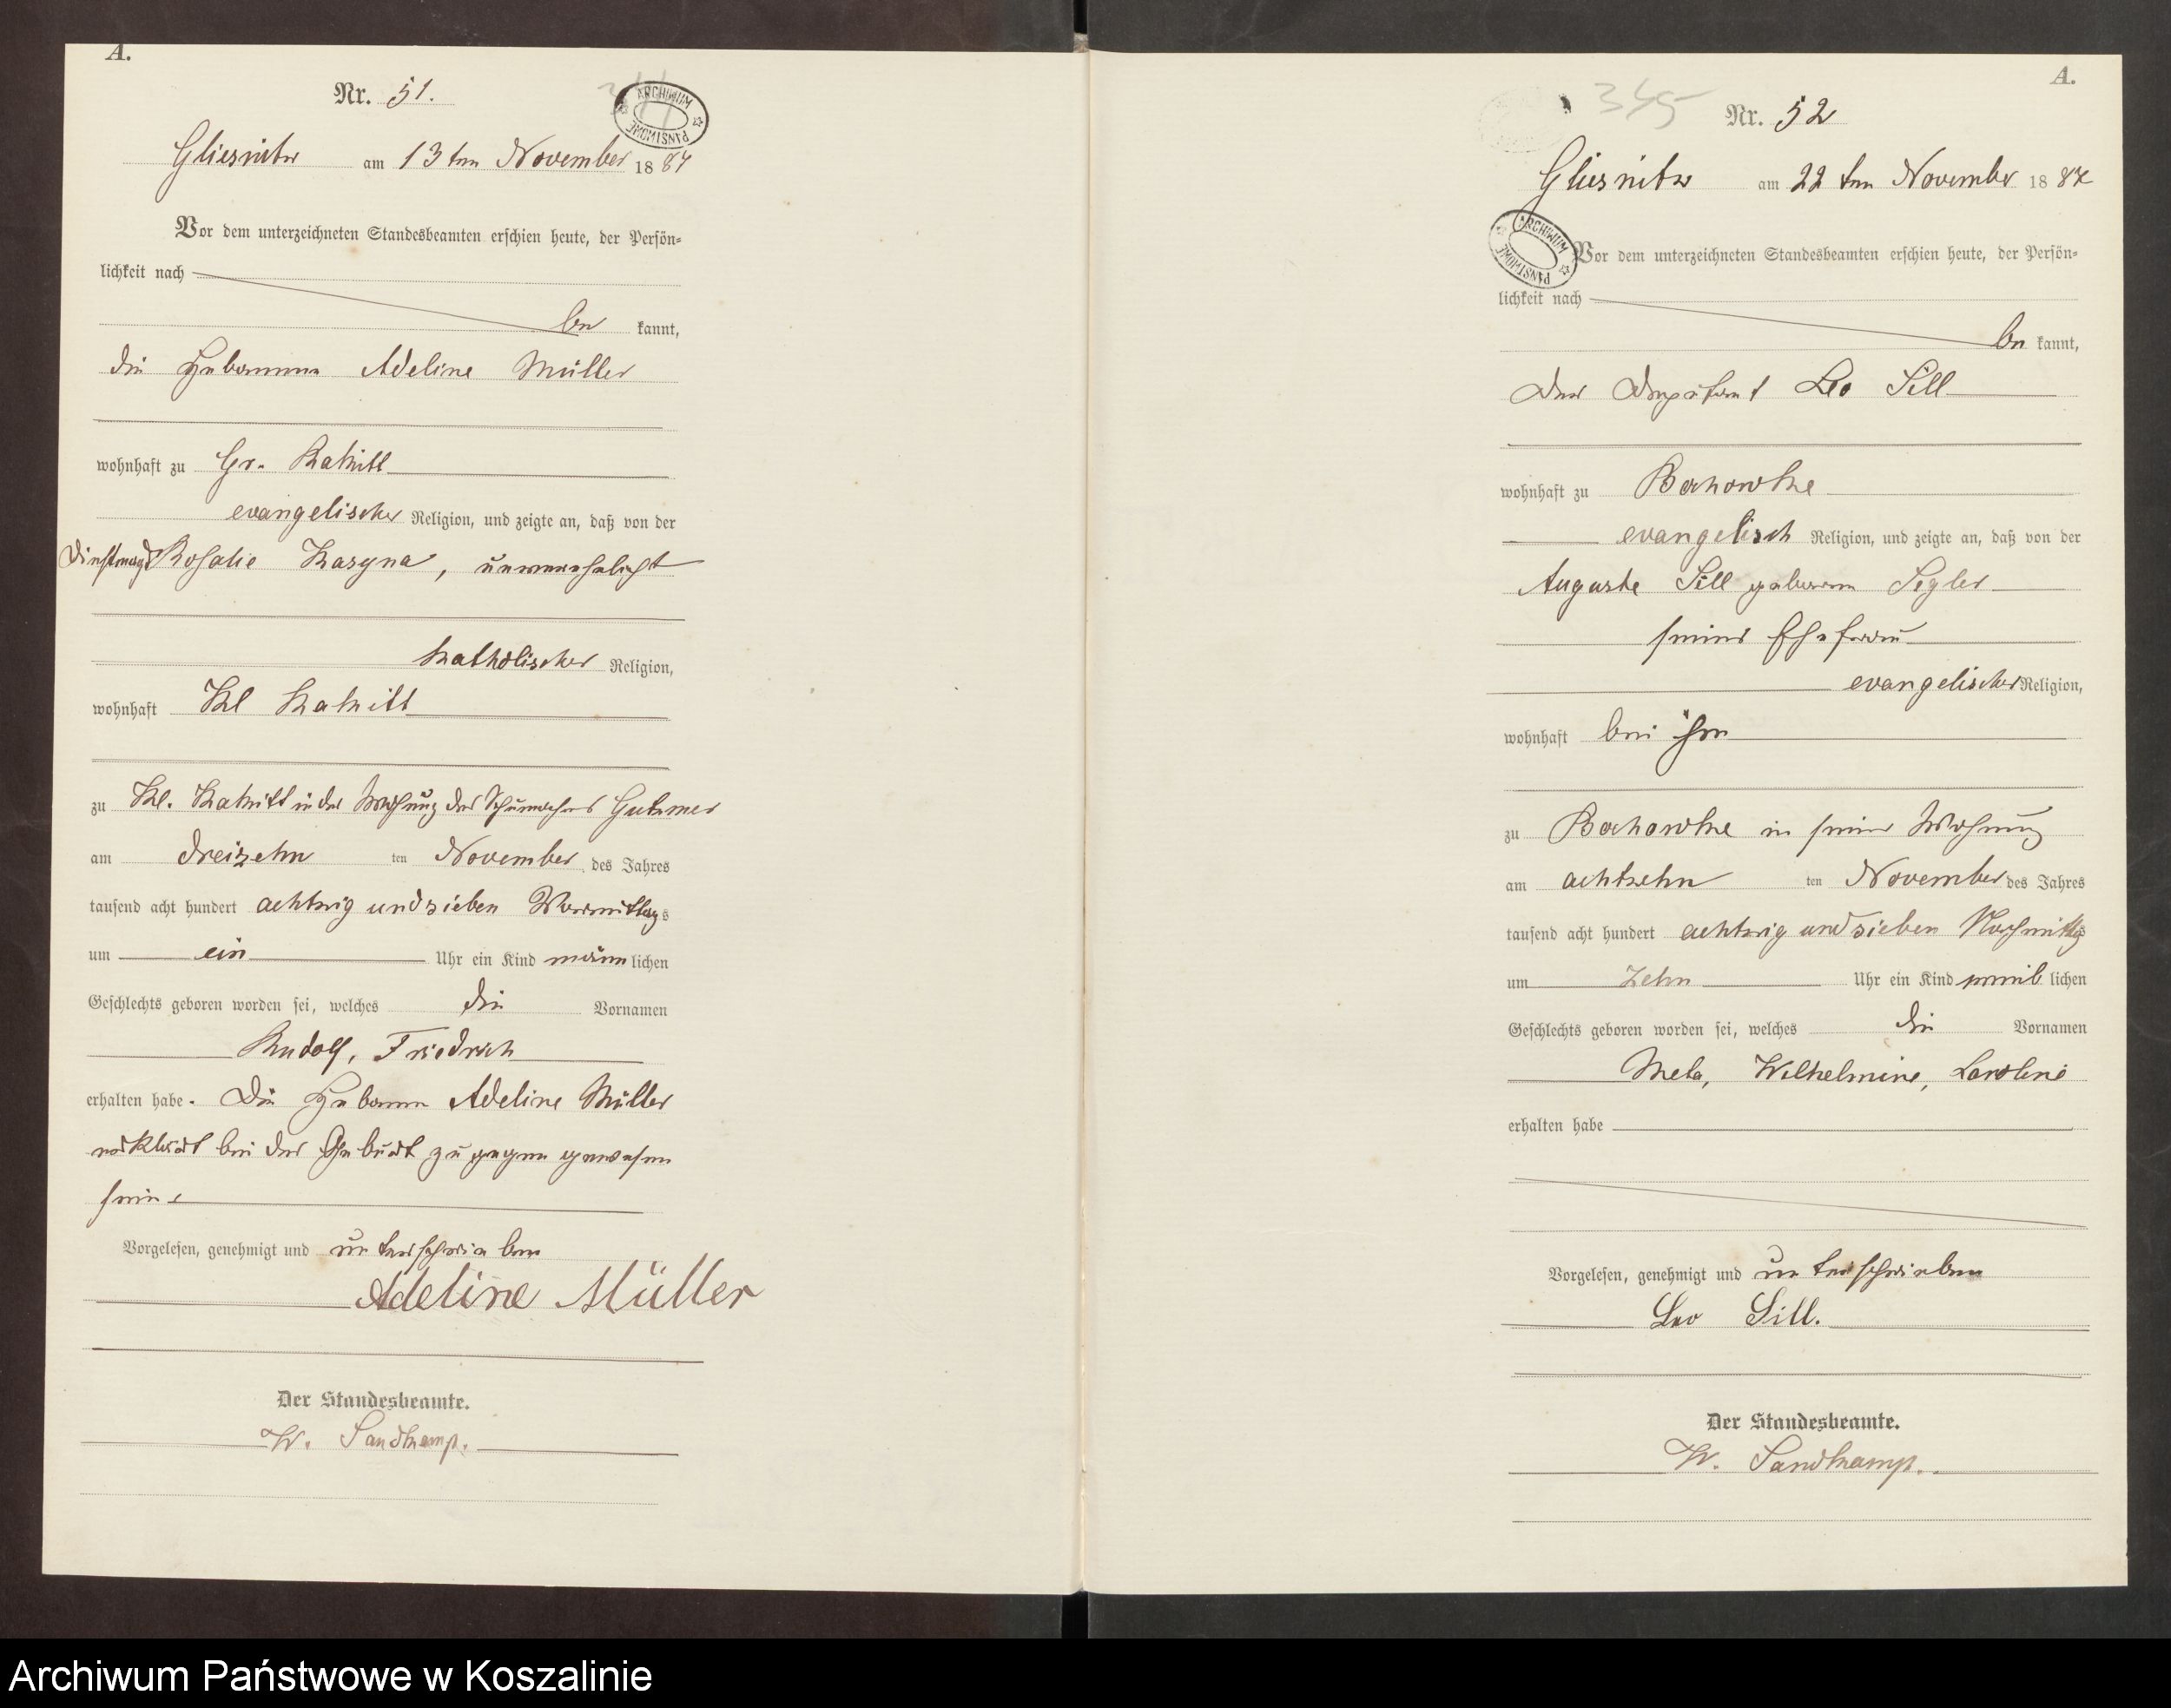 A.
Nr. 51.
ARCHIWUM PAŃSTWOWE
Gliesnitz am 13ten November 1887
Vor dem unterzeichneten Standesbeamten erschien heute, der Persön=
lichkeit nach
be kannt,
die Hebamme Adeline Müller
wohnhaft zu Gr. Rakitt
evangelischer Religion, und zeigte an, daß von der
Dienstmagd Rosalie, unverehelicht
katholischer Religion,
wohnhaft Kl Rakitt
zu Kl. Rakitt in der Wohnung des Schumachers
am dreizehn ten November des Jahres
tausend acht hundert achtzig und sieben Vormittags
um ein Uhr ein Kind männlichen
Geschlechts geboren worden sei, welches die Vornamen
Rudolf, Friedrich
erhalten habe. Die Hebamme Adeline Müller
erklärt bei der Geburt zugegen gewesen
sein.
Vorgelesen, genehmigt und unterschrieben
Adeline Müller
Der Standesbeamte.
W. Sandkamp.
A.
345
Nr. 52
Gliesnitz am 22ten November 1887
ARCHIWUM PAŃSTWOWE
Vor dem unterzeichneten Standesbeamten erschien heute, der Persön=
lichkeit nach
be kannt,
Der Deputant Leo Sill
wohnhaft zu Bochowke
evangelisch Religion, und zeigte an, daß von der
Auguste Sill geboren Segler
seiner Ehefrau
evangelischer Religion,
wohnhaft bei ihm
zu Bochowke in seiner Wohnung
am achtzehn ten November des Jahres
tausend acht hundert achtzig und sieben Nachmittags
um zehn Uhr ein Kind weib lichen
Geschlechts geboren worden sei, welches die Vornamen
Meta, Wilhelmine, Karoline
erhalten habe
Vorgelesen, genehmigt und unterschrieben
Leo Sill.
Der Standesbeamte.
W. Sandkamp.
Archiwum Państwowe w Koszalinie